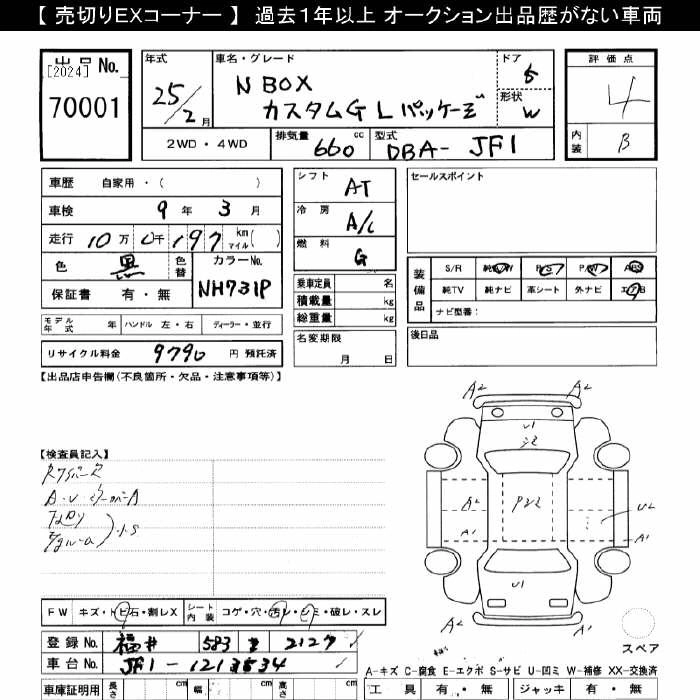 【 売切りEXコーナー 】 過去1年以上 オークション出品歴がない車両
出品 No.
[2024]
70001
年式
25/2月
車名・グレード
N BOX
カスタムG L パッケージ
ドア
5
形状
W
評価点
4
内装
B
2WD・4WD
排気量 660 cc
型式 DBA- JF1
車歴 自家用・( )
車検 9年 3月
走行 10万 0千 197 km マイル( )
色 黒 色替
カラーNo. NH731P
保証書 有・無
シフト AT
冷房 A/C
燃料 G
乗車定員 名
積載量 kg
総重量 kg
セールスポイント
装備品
S/R 純SW P/S P/W ABS
純TV 純ナビ 革シート 外ナビ エアB
ナビ型番:
モデル年式 年 ハンドル 左・右 ディーラー・並行
リサイクル料金 9790 円 預託済
名変期限
月 日
後日品
【出品店申告欄(不良箇所・欠品・注意事項等)】
【検査員記入】
A2 A2
U1
A2
A1
U2
A1
U1
A2 A2
スペア
FW キズ・トビ石・割レX シート内装 コゲ・穴・汚レ・シミ・破レ・スレ
登録 No. 福井 583 2127
車台 No. JF1-1213834
A-キズ C-腐食 E-エクボ S-サビ U-凹ミ W-補修 XX-交換済
車庫証明用 長さ cm 幅 cm 高さ cm
工具 有・無 ジャッキ 有・無